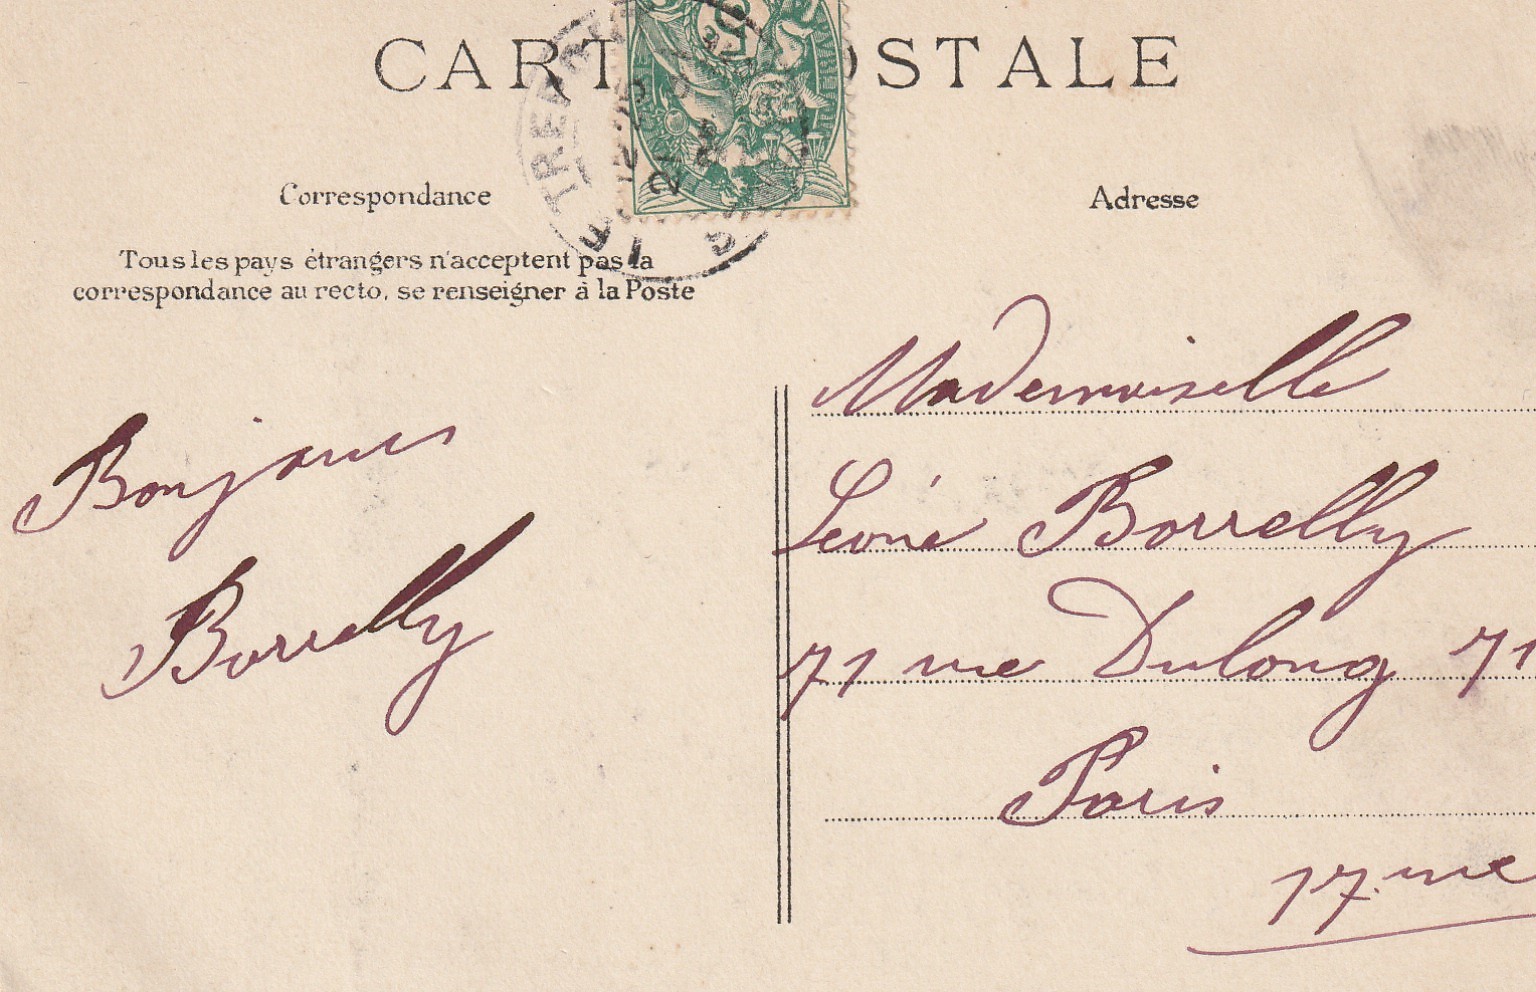 CARTE POSTALE
Correspondance
Tous les pays étrangers n'acceptent pas la
correspondance au recto, se renseigner à la Poste
Adresse
Bonjour
Borrelly
Mademoiselle
Léonie Borrelly
71 rue Dulong 71
Paris
17.me